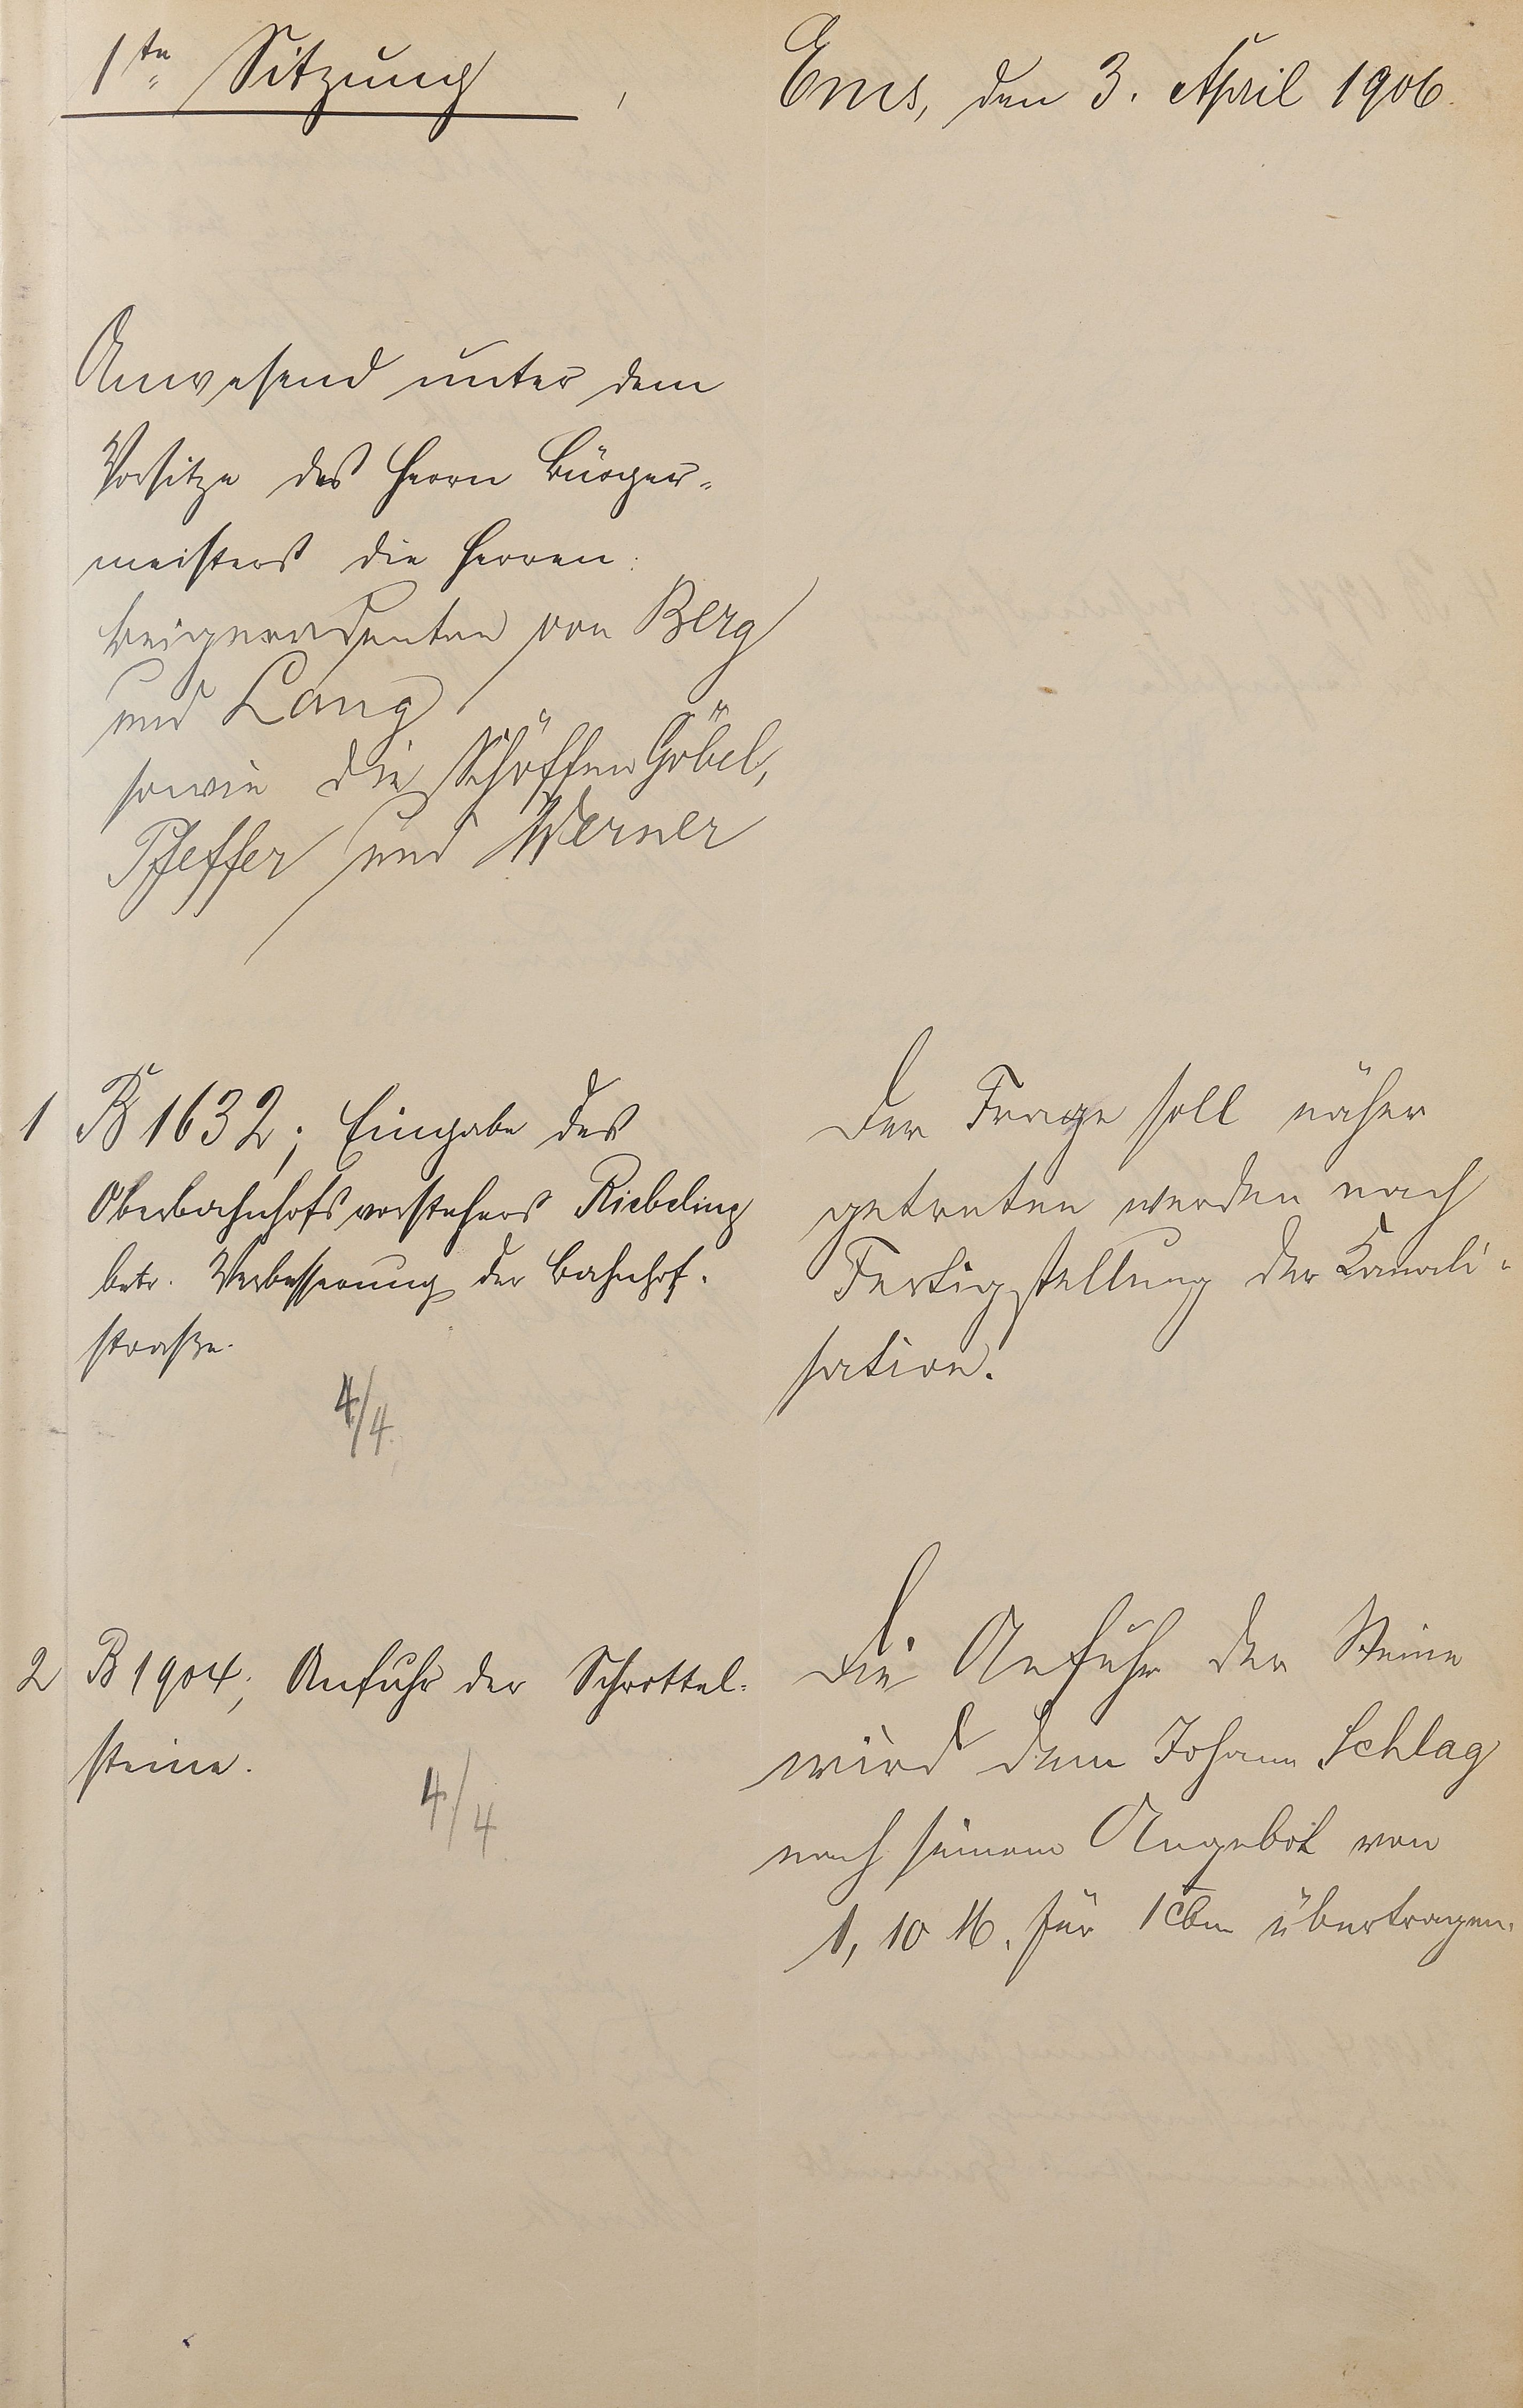 1te Sitzung
Ems, den 3. April 1906.
Anwesend unter dem
Vorsitze des Herrn Bürger-
meisters die Herren:
Beigeordneten von Berg
und Lang
sowie die Schöffen Göbel,
Pfeffer und Werner
1 B 1632; Eingabe des
Oberbahnhofsvorstehers Riebeling
betr. Verbesserung der Bahnhof-
straße.
4/4
Der Frage soll näher
getreten werden nach
Fertigstellung der Kanali-
sation.
2 B 1904; Anfuhr der Schrottel-
steine.
4/4
Die Anfuhr der Steine
wird dem Johann Schlag
nach seinem Angebot von
1,10 M. für 1 cbm übertragen.